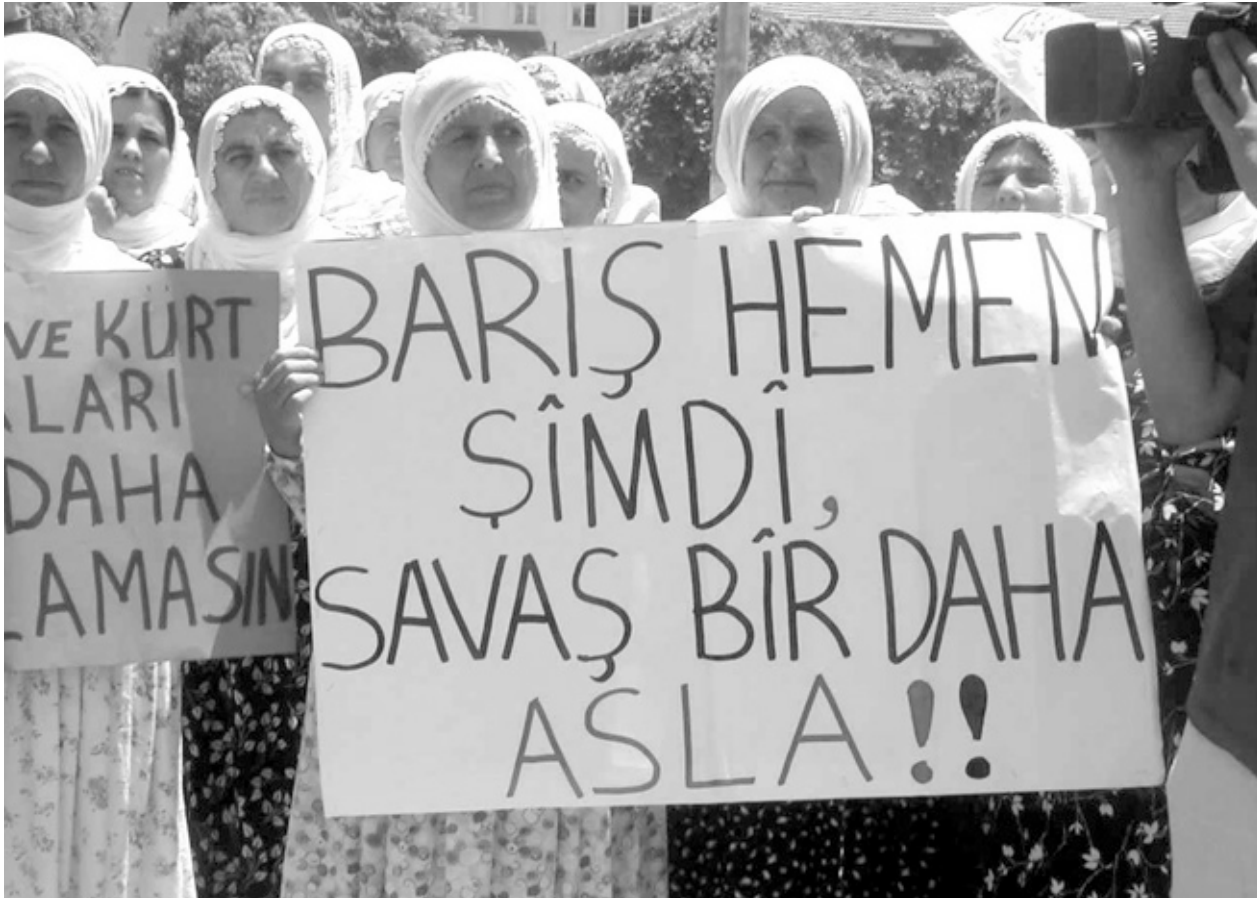 VE KÜRT
LARI
DAHA
LAMASIN
BARIŞ HEMEN
ŞÎMDÎ,
SAVAŞ BÎR DAHA
ASLA !!